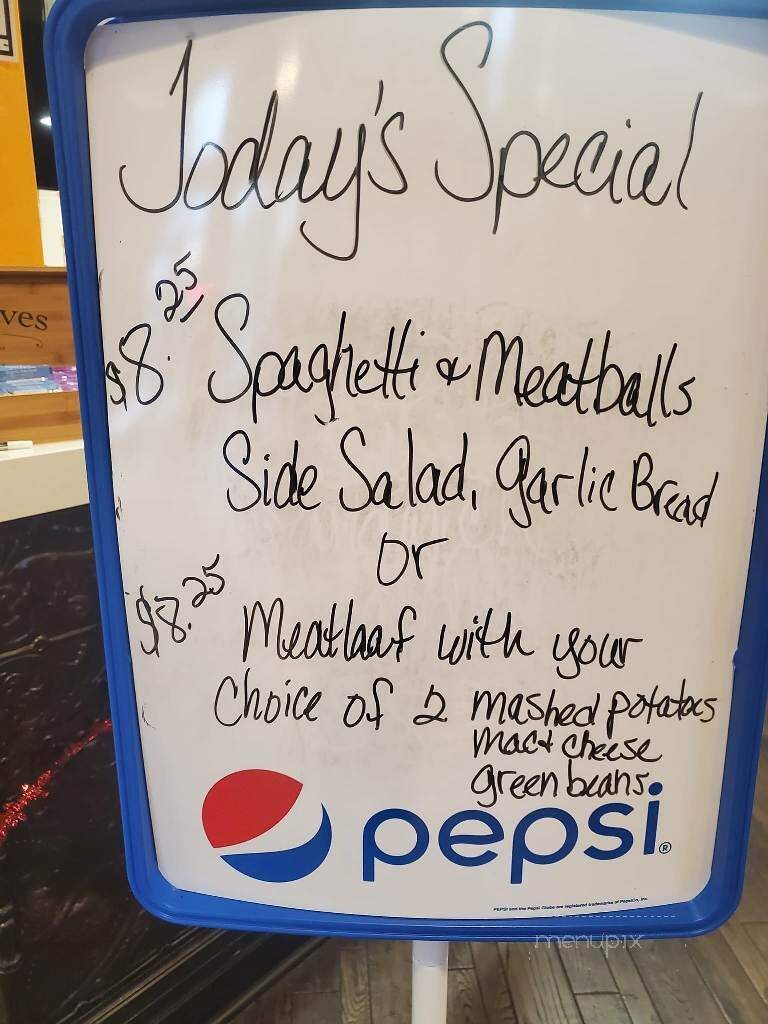 Today's Special
$8.25 Spaghetti & Meatballs
Side Salad, Garlic Bread
or
$8.25 Meatloaf with your
Choice of 2 mashed potatoes
mac & cheese
green beans
pepsi®
PEPSI and the Pepsi Globe are registered trademarks of PepsiCo, Inc.
ves
menupix